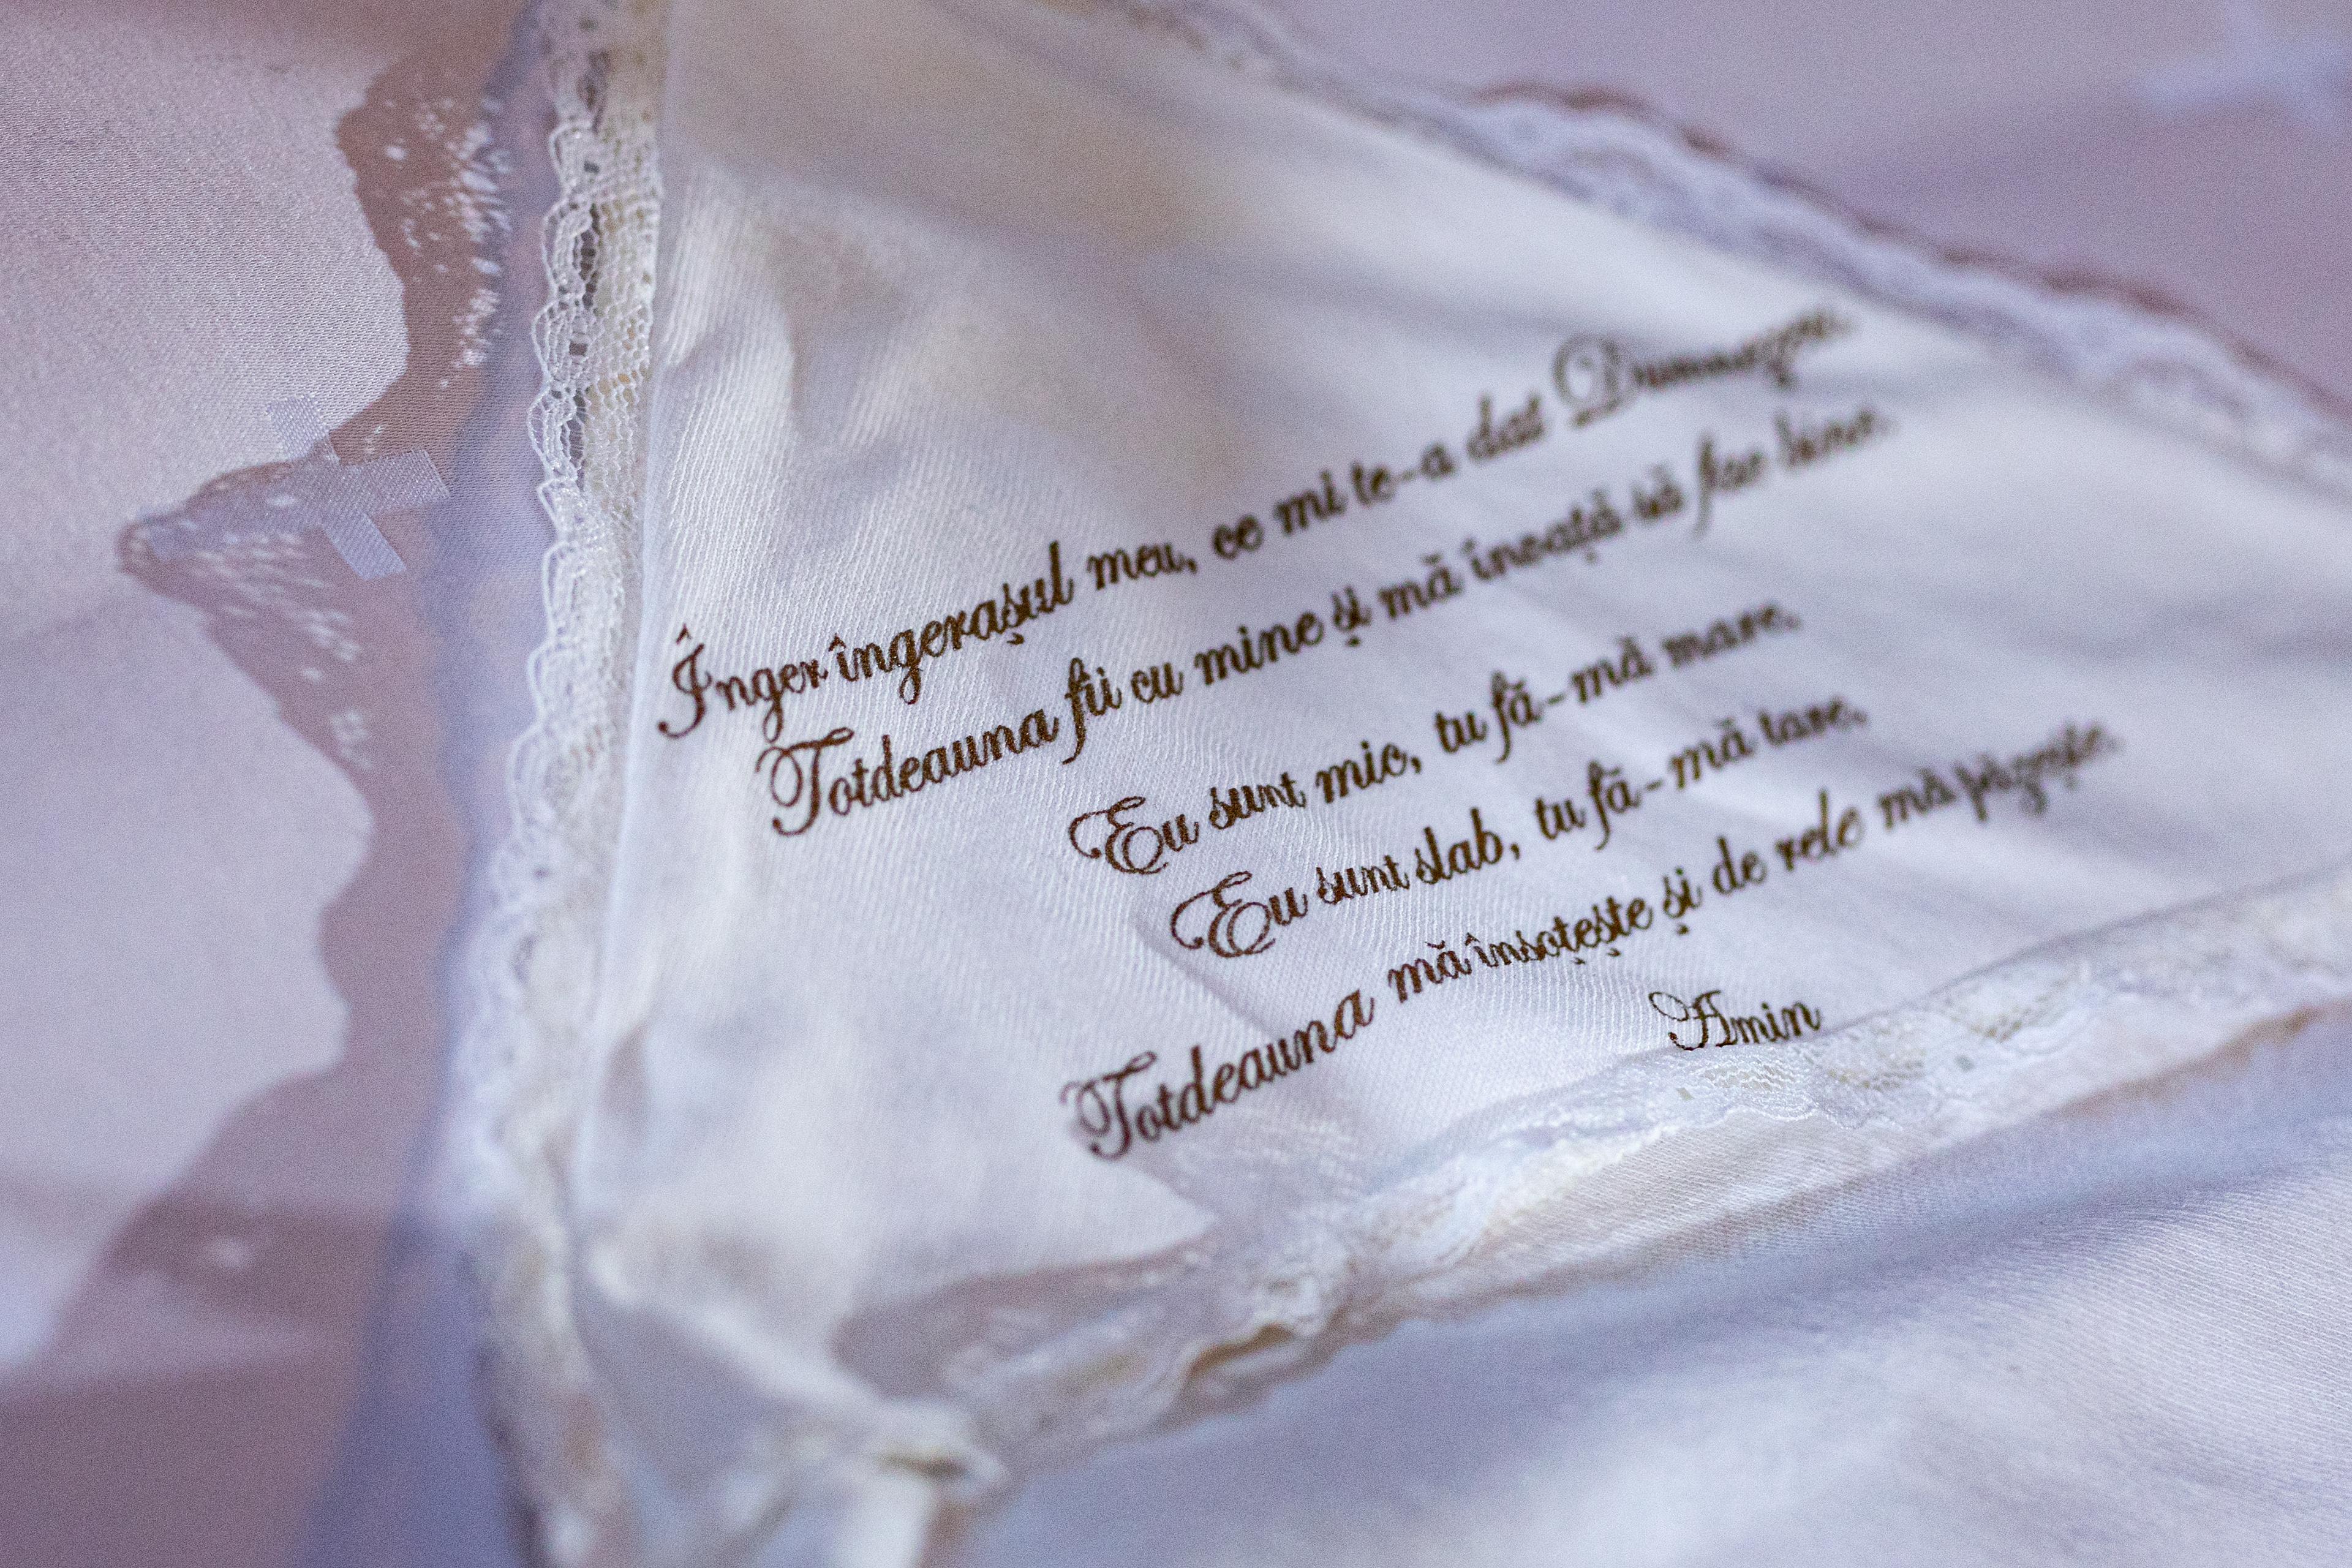 Înger îngerașul meu, ce mi te-a dat Dumnezeu.
Totdeauna fii cu mine și mă învață să fac bine.
Eu sunt mic, tu fă-mă mare.
Eu sunt slab, tu fă-mă tare.
Totdeauna mă însoțește și de rele mă păzește.
Amin